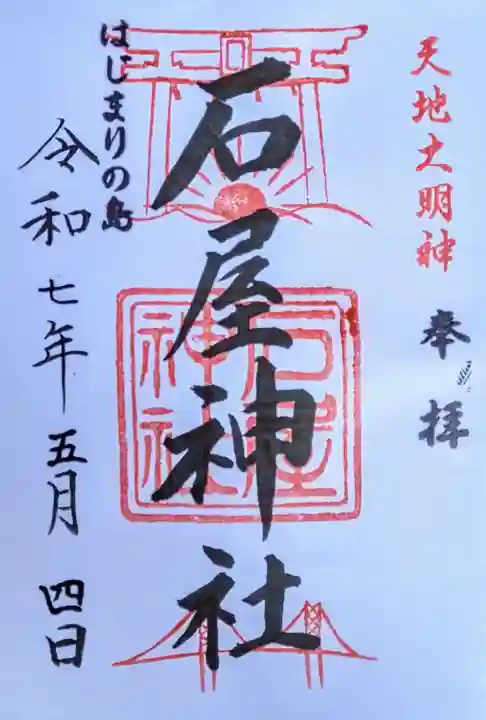 天地大明神
奉拝
石屋神社
石屋神社
はじまりの島
令和七年五月四日